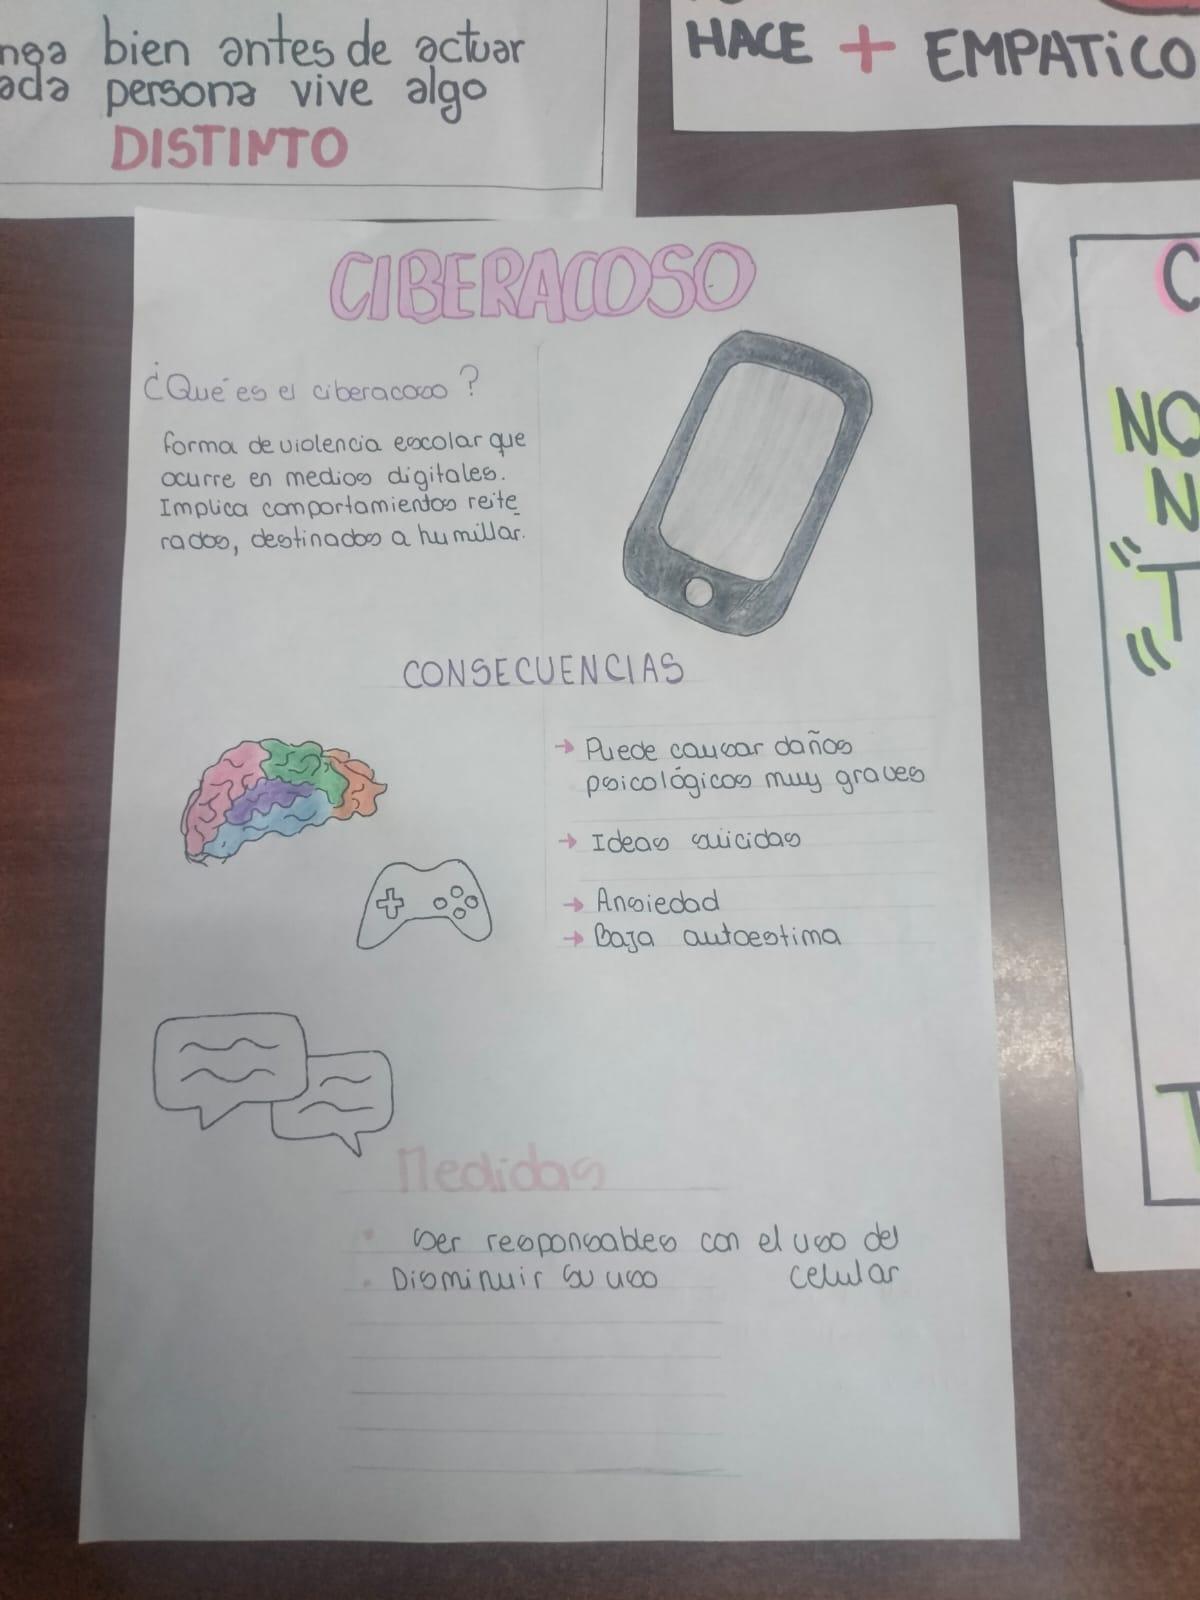 bien antes de actuar
persona vive algo
DISTINTO
HACE + EMPATiCO
CIBERACOSO
¿Qué es el ciberacoso?
forma de violencia escolar que
ocurre en medios digitales.
Implica comportamientos reite
rados, destinados a humillar.
CONSECUENCIAS
→ Puede causar daños
psicológicos muy graves
→ Ideas suicidas
→ Ansiedad
→ Baja autoestima
Medidas
• Ser responsables con el uso del
celular
• Disminuir su uso
C
NO
N
"T
"
T